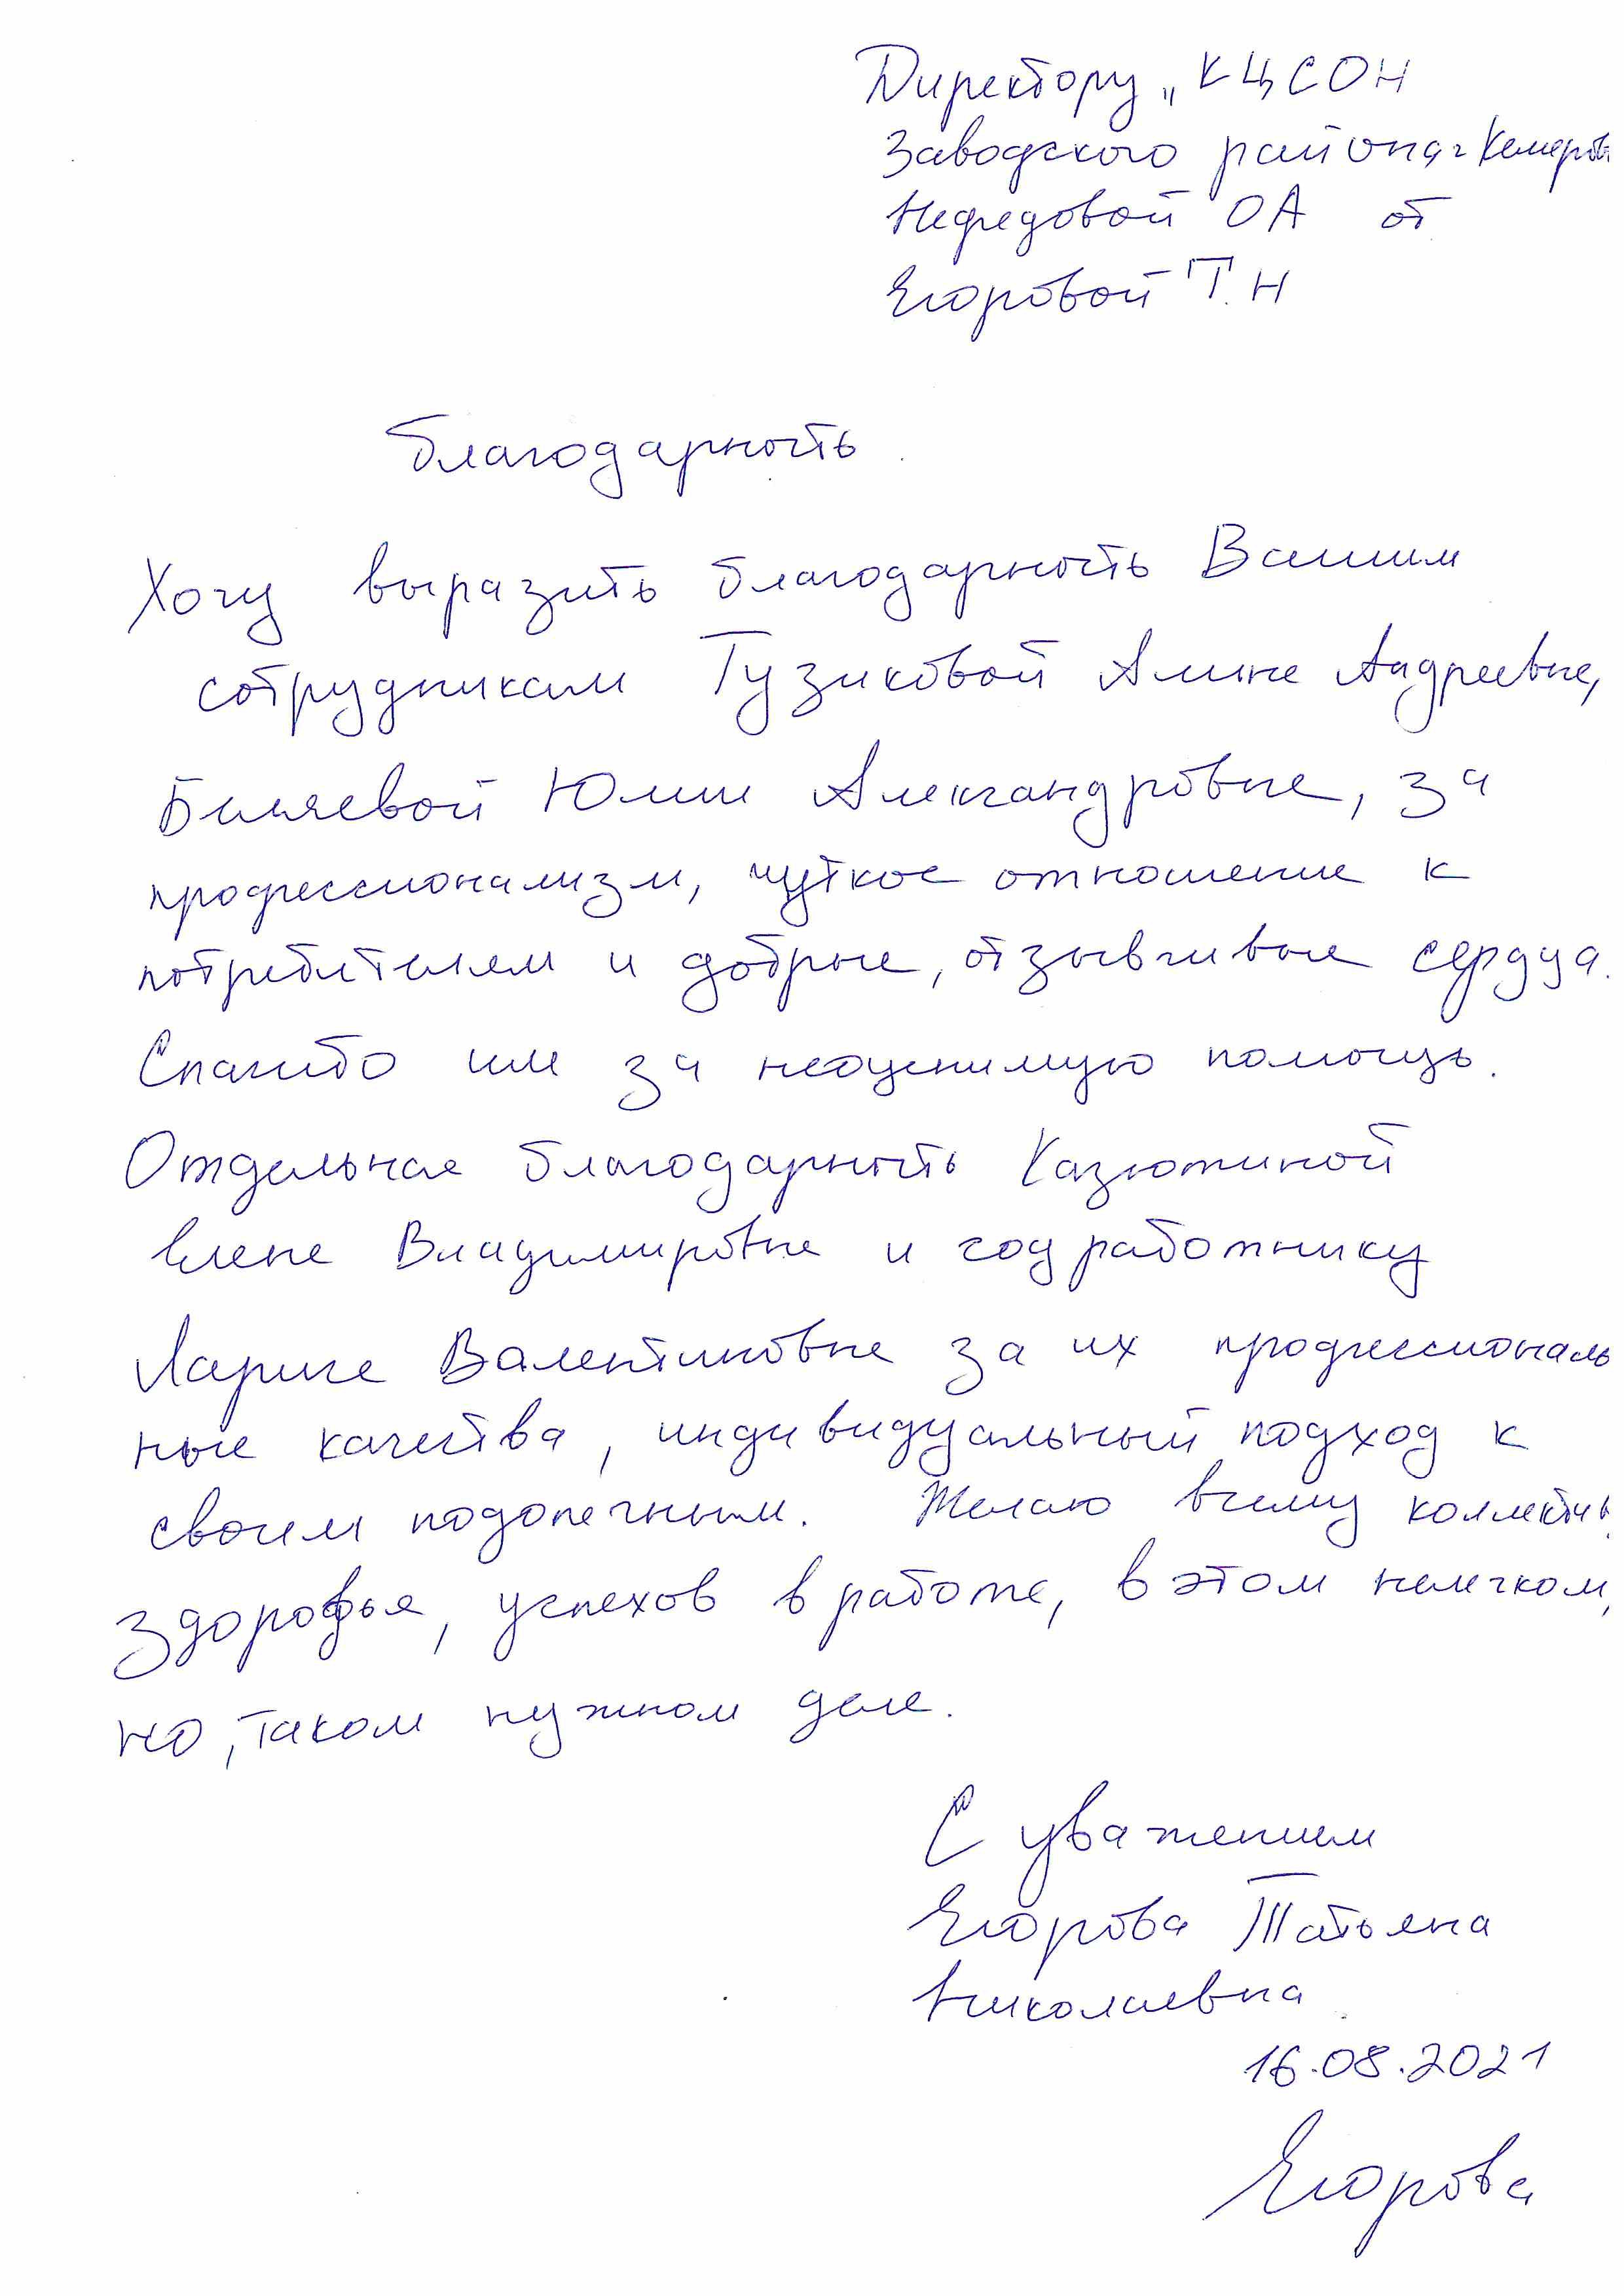 Директору „КЦСОН
Заводского района г Кемеров
Нефедовой ОА от
Егоровой Т.Н
Благодарность.
Хочу выразить благодарность Вашим
сотрудникам Гузиковой Алине Андреевне,
Беляевой Юлии Александровне, за
профессионализм, чуткое отношение к
потребителям и добрые, отзывчивые сердца.
Спасибо им за неоценимую помощь.
Отдельная благодарность Казютиной
Елене Владимировне и соц работнику
Ларисе Валентиновне за их профессиональ
ные качества, индивидуальный подход к
своим подопечным. Желаю всему коллектив
здоровья, успехов в работе, в этом нелегком,
но, таком нужном деле.
С уважением
Егорова Татьяна
Николаевна
16.08.2021
Егорова